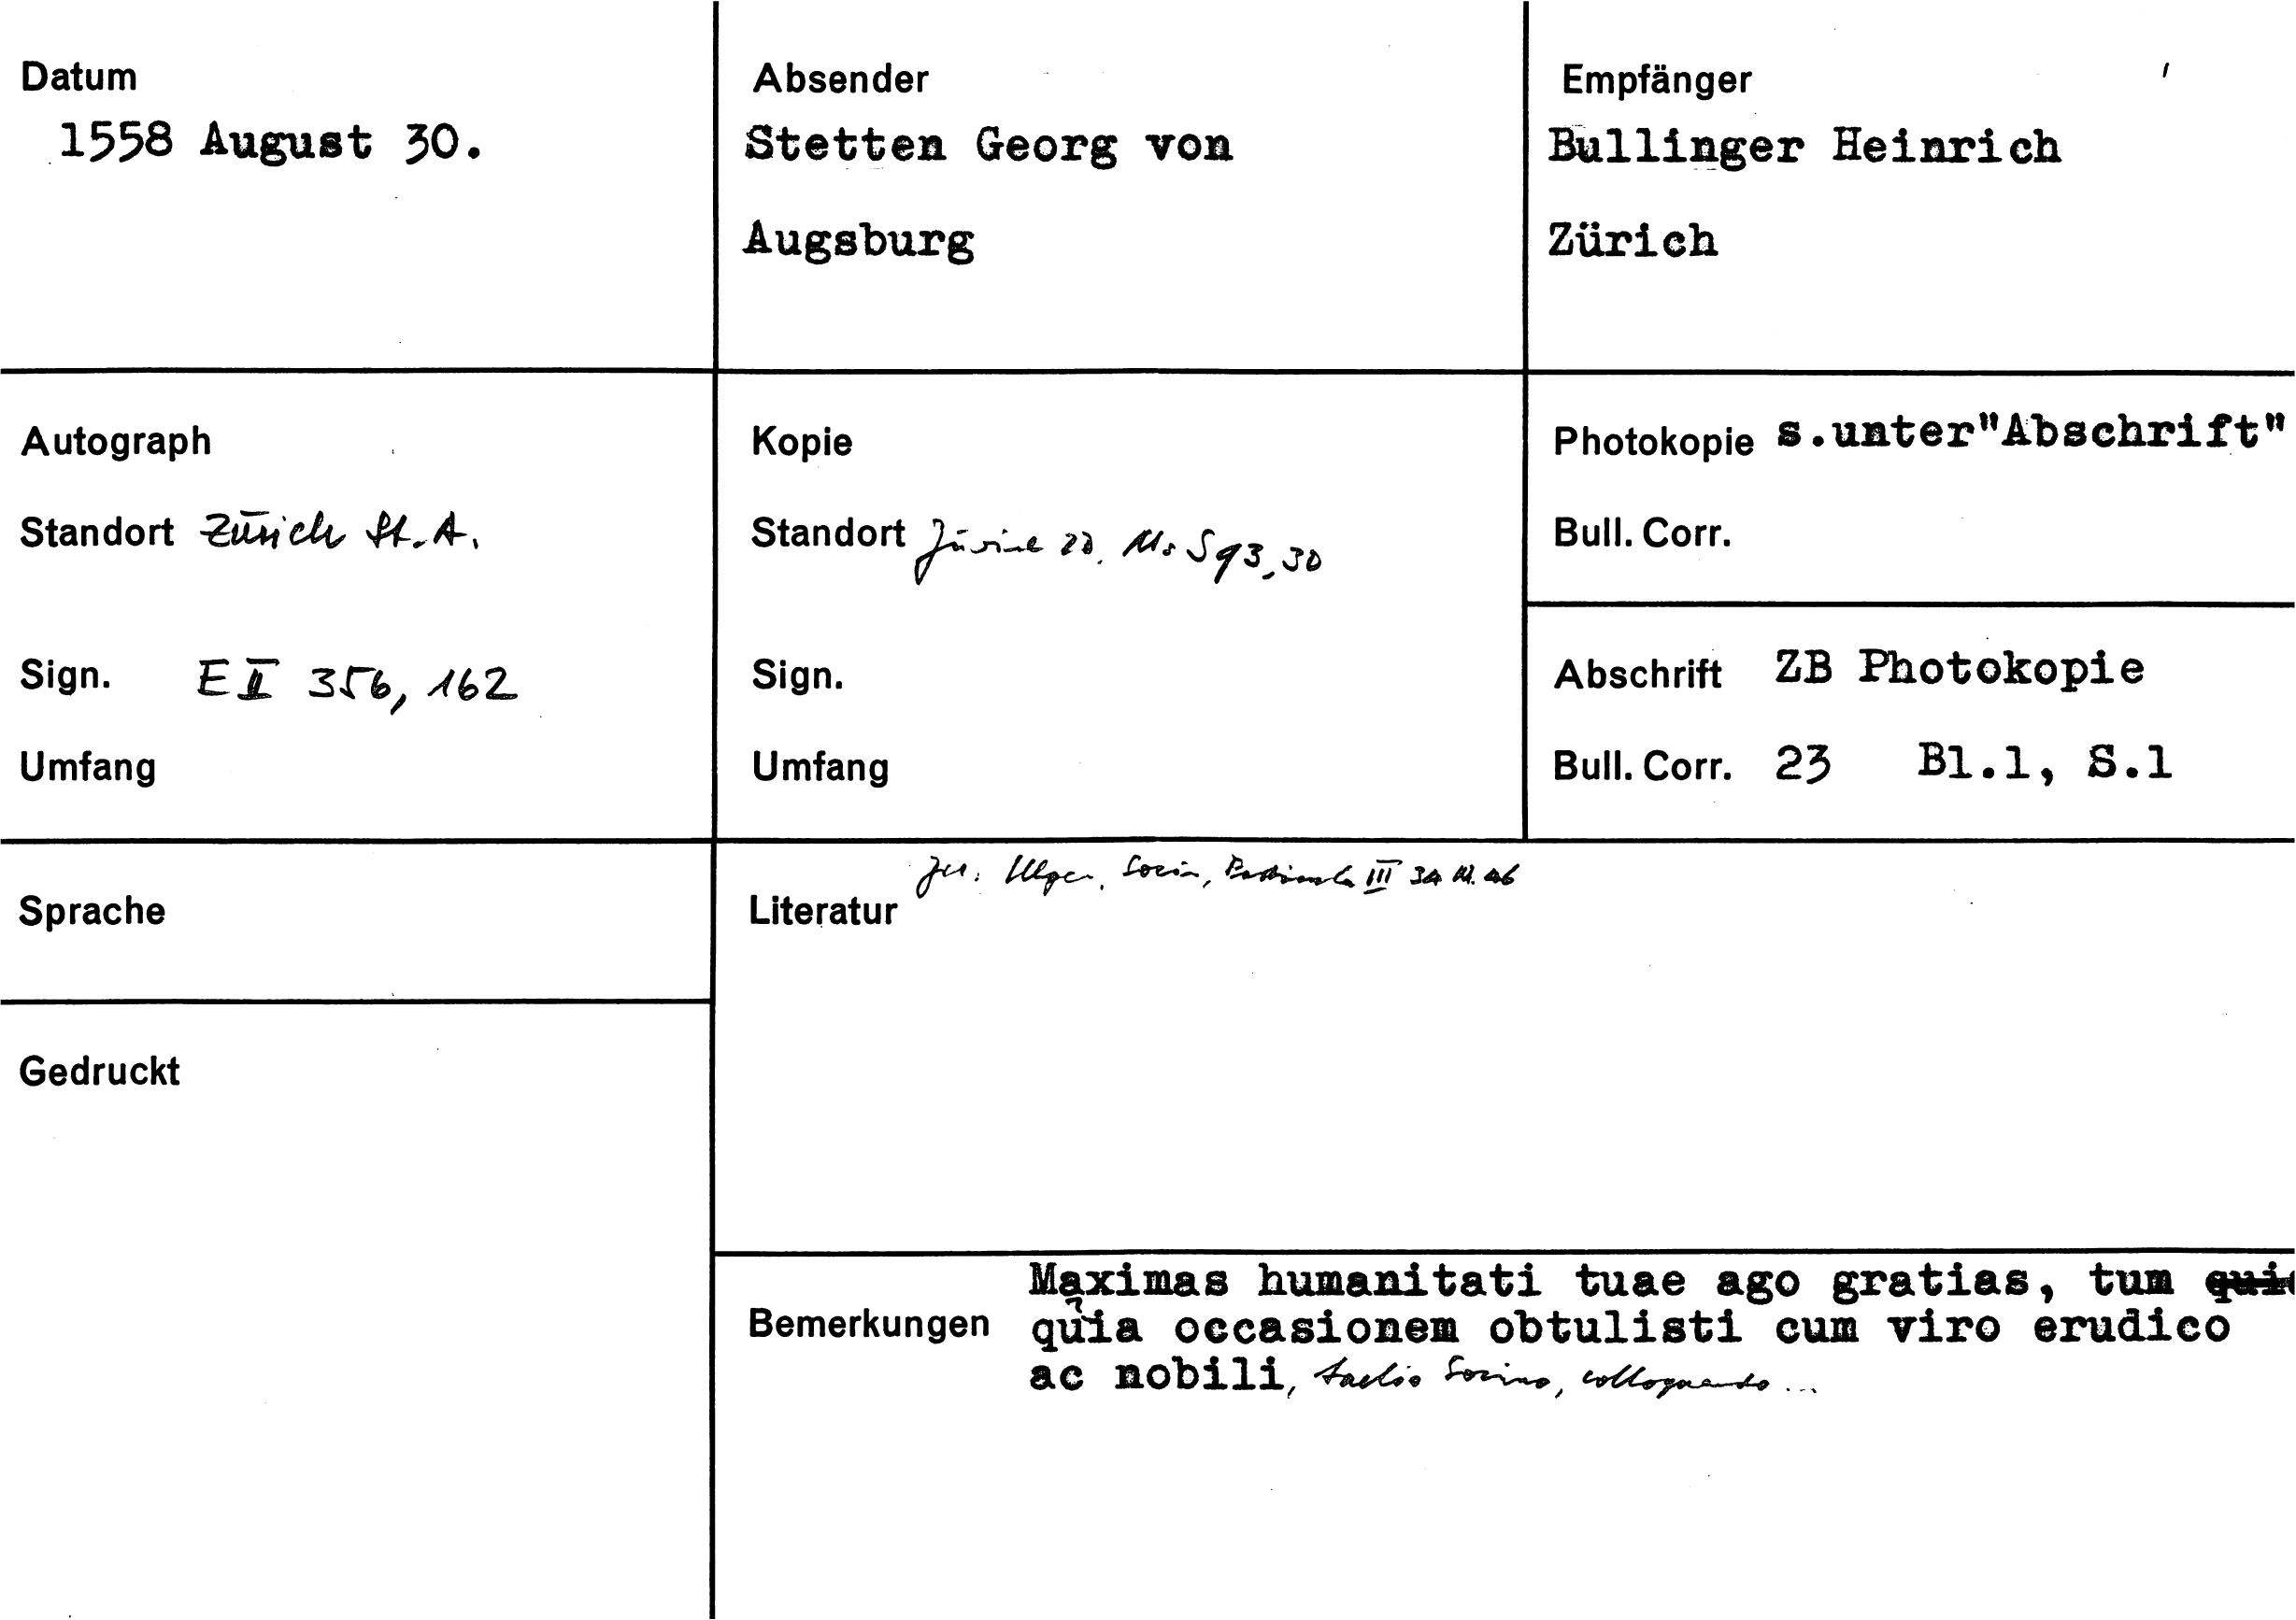 Datum
1558 August 30.
Absender
Stetten Georg von
Augsburg
Empfänger
Bullinger Heinrich
Zürich
Autograph
Standort Zürich St. A.
Sign. E II 356, 162
Umfang
Kopie
Standort Zürich ZB. Ms S 93, 30
Sign.
Umfang
Photokopie s.unter"Abschrift"
Bull. Corr.
Abschrift ZB Photokopie
Bull. Corr. 23 Bl.1, S.1
Sprache
Gedruckt
III 34
Literatur
Maximas humanitati tuae ago gratias, tum
Bemerkungen quia occasionem obtulisti cum viro erudico
ac nobili, Laelio Socino, colloquendo ...